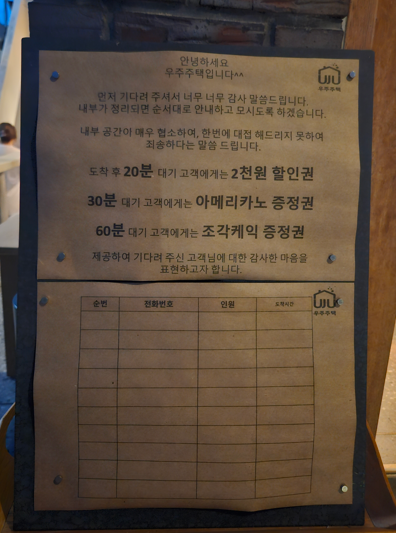 안녕하세요
우주주택입니다^^
우주주택
먼저 기다려 주셔서 너무 너무 감사 말씀드립니다.
내부가 정리되면 순서대로 안내하고 모시도록 하겠습니다.
내부 공간이 매우 협소하여, 한번에 대접 해드리지 못하여
죄송하다는 말씀 드립니다.
도착 후 20분 대기 고객에게는 2천원 할인권
30분 대기 고객에게는 아메리카노 증정권
60분 대기 고객에게는 조각케익 증정권
제공하여 기다려 주신 고객님에 대한 감사한 마음을
표현하고자 합니다.
우주주택
순번 전화번호 인원 도착시간